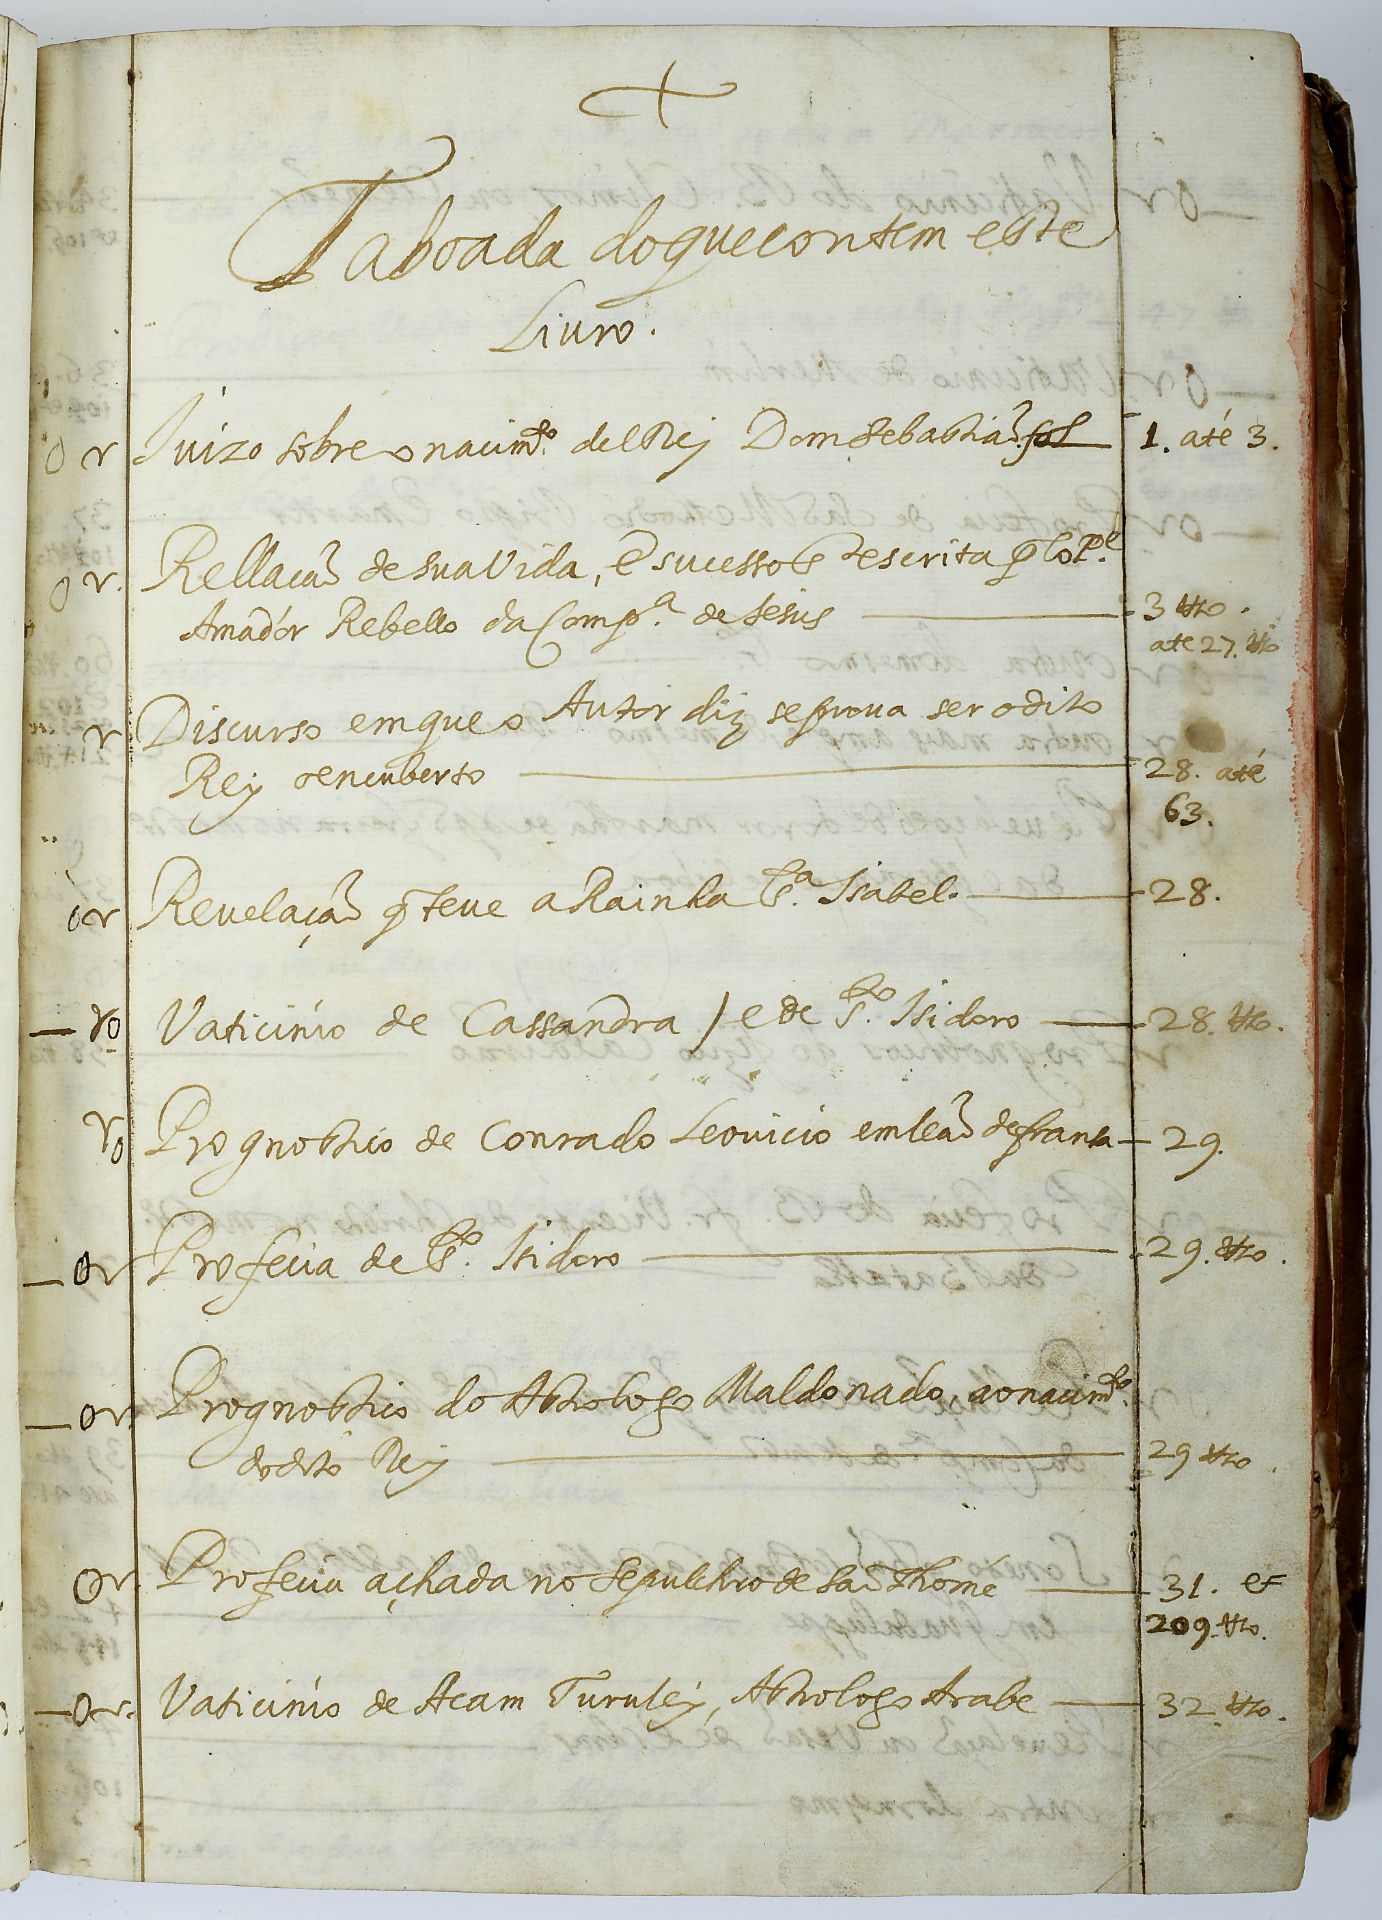 Taboada do que contem este
Liuro.
or Juizo sobre o nacimto. del Rey Dom Sebastiaõ. fol 1. até 3.
or. Rellacaõ de sua Vida, e sucessos escrita
Amador Rebello da Compa. de Jesus 3 vto.
ate 27. vto
r Discurso em que o Autor diz se proua ser o dito
Rey o encuberto 28. até
63.
or Reuelaçaõ q̃ teue a Rainha Sta. Isabel. 28.
ro Vaticinio de Cassandra / e de Sto. Isidoro 28. vto.
ro Prognostico de Conrado Leouicio em leaõ de fransa 29.
or Profecia de Sto. Isidoro 29. vto.
or. Prognostico do Astrologo Maldonado, ao nacimto.
do dito Rey 29 vto.
or. Profecia açhada no sepulchro de Saõ Thomé 31. et
209. vto.
or. Vaticinio de Acam Turuley, Astrologo Arabe 32. vto.